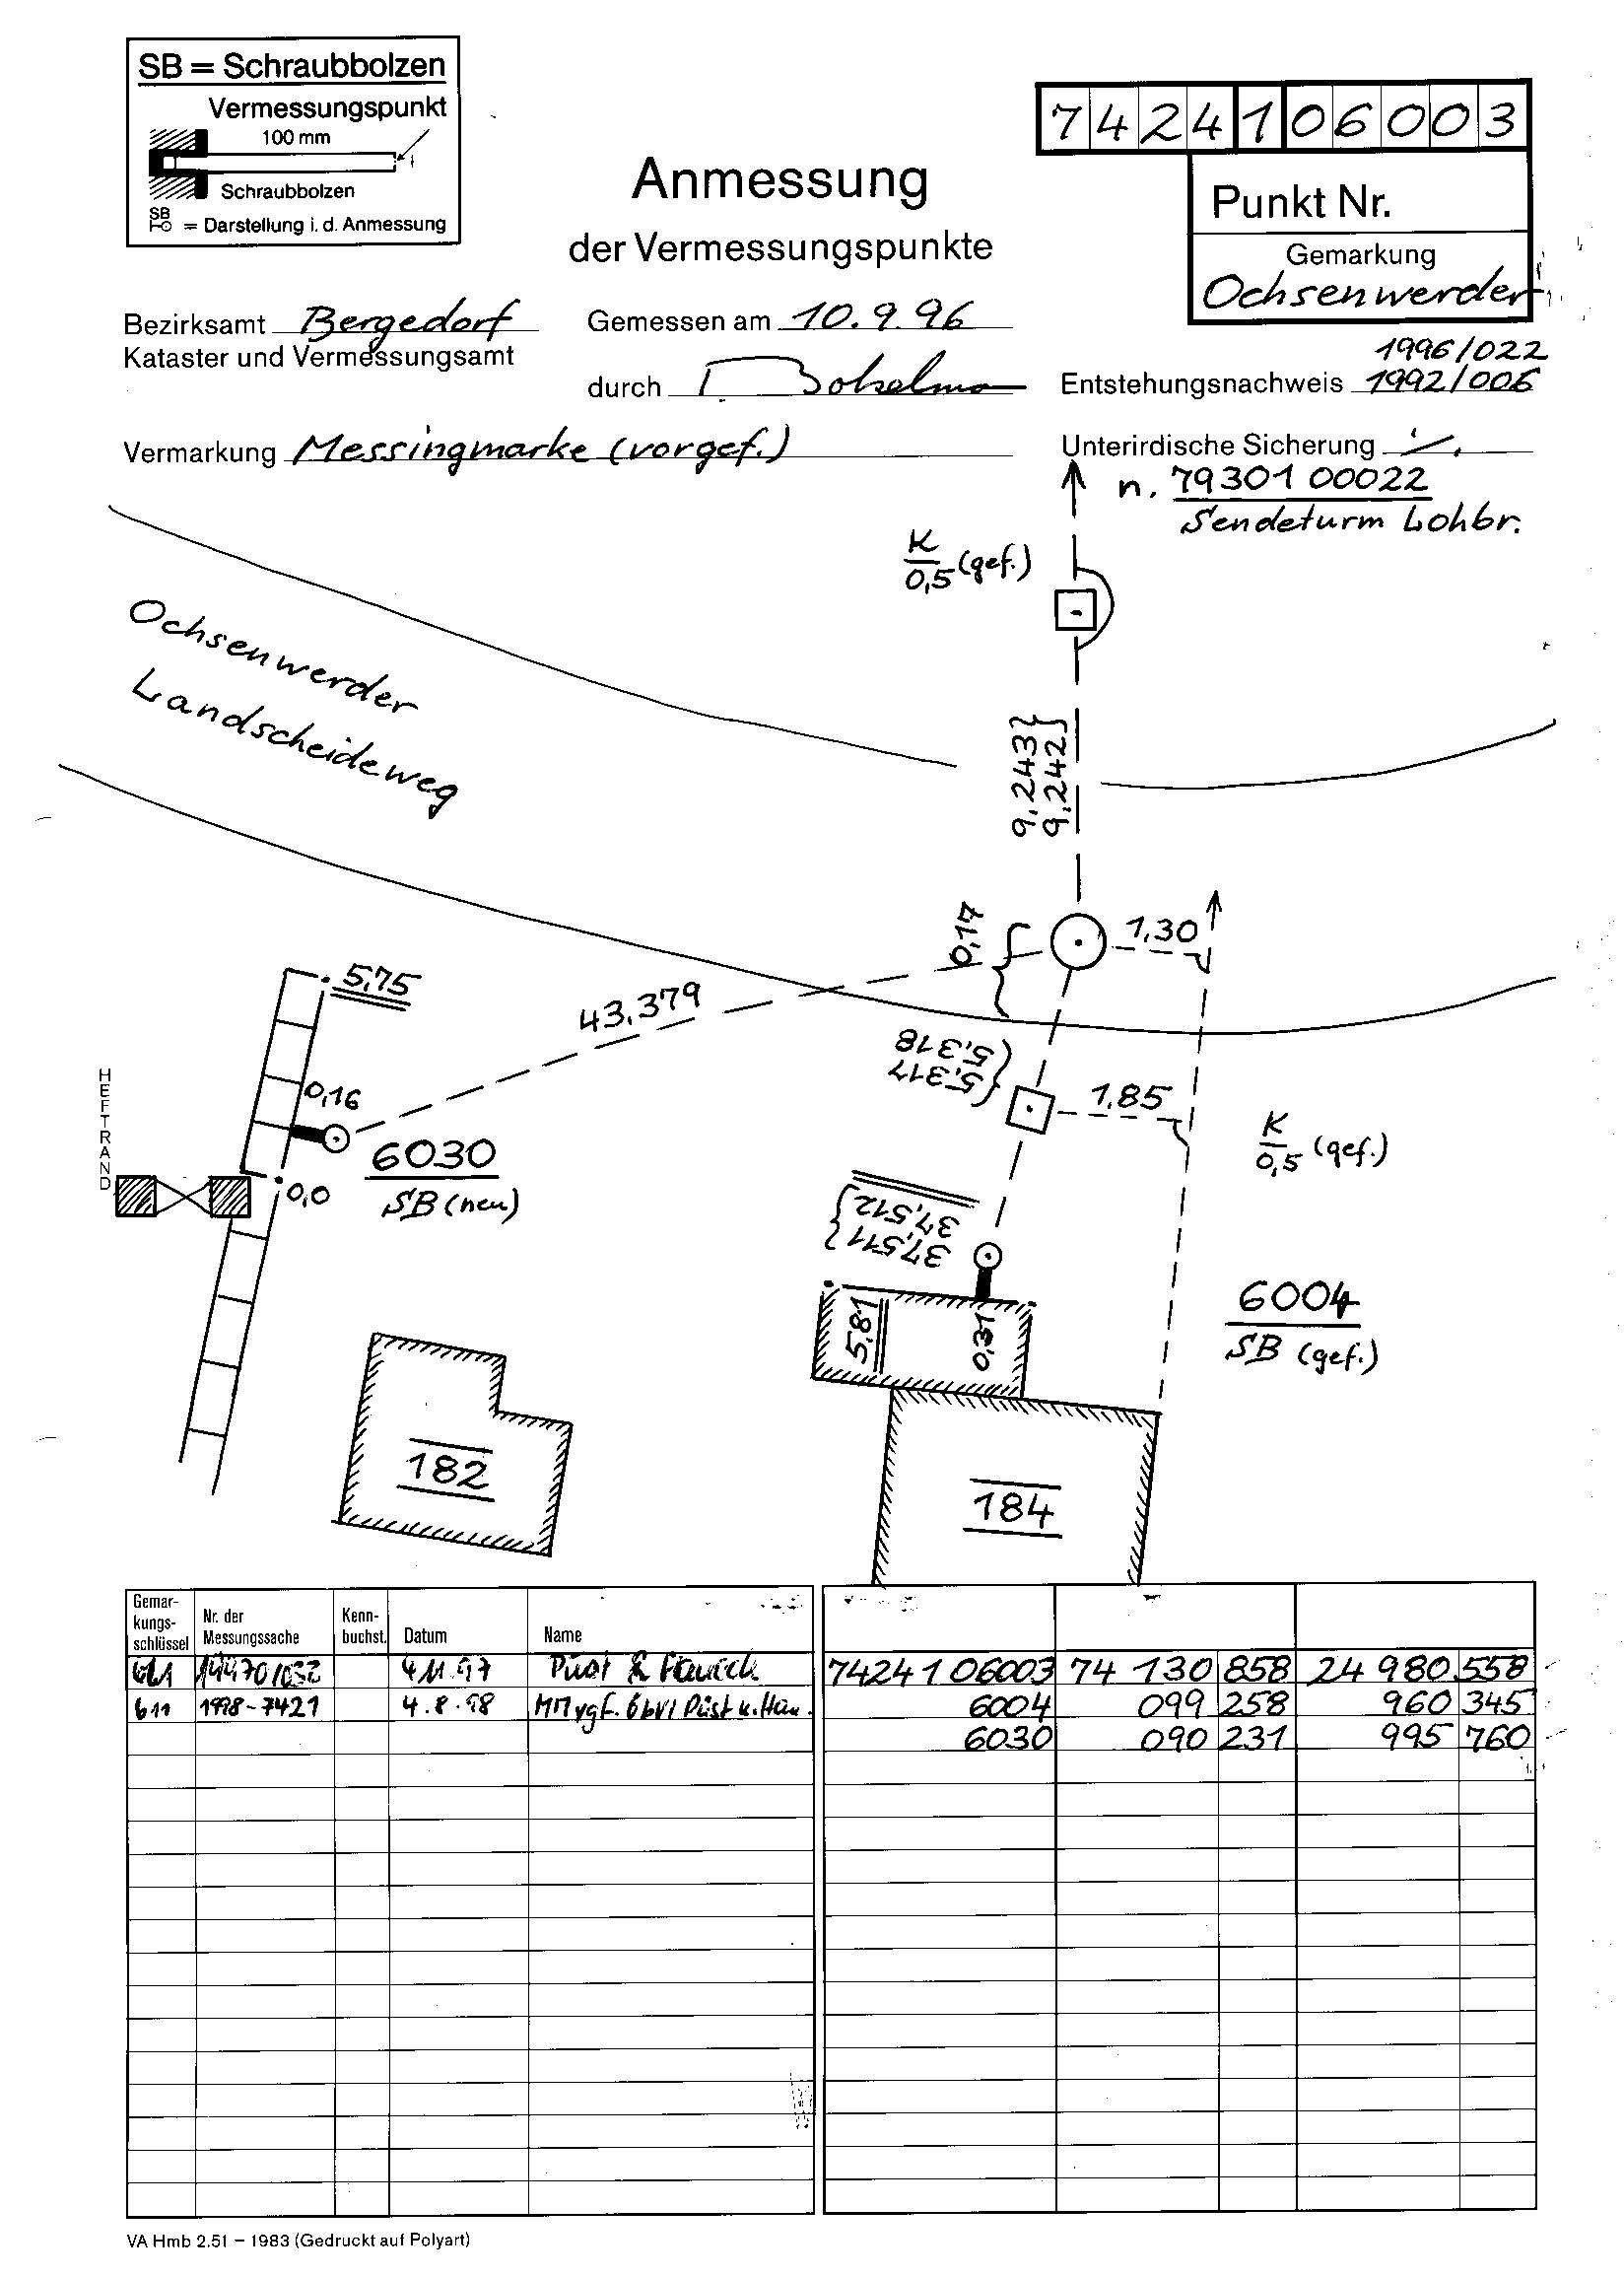 SB = Schraubbolzen
Vermessungspunkt
100 mm
Schraubbolzen
SB
= Darstellung i. d. Anmessung
Anmessung
der Vermessungspunkte
7424106003
Punkt Nr.
Gemarkung
Ochsenwerder
Bezirksamt Bergedorf
Kataster und Vermessungsamt
Gemessen am 10.9.96
durch
1996/022
Entstehungsnachweis 1992/006
Vermarkung Messingmarke (vorgef.)
Unterirdische Sicherung ./.
n. 79301 00022
Sendeturm Lohbr.
K
0,5 (gef.)
Ochsenwerder
Landscheideweg
9,243}
9,242}
0,17
1,30
5,75
43,379
5,318
5,317
1,85
0,16
HEFTRAND
6030
SB (neu)
0,0
K
0,5 (gef.)
37,512
37,511
6004
SB (gef.)
5,81
0,31
182
184
Gemar-
kungs-
schlüssel
Nr. der
Messungssache
Kenn-
buchst.
Datum
Name
4.11.97 Püst & Hauck 7424106003 74 130 858 24 980 558
611 1998-7421 4.8.98 MM vgf. ÖbVI Püst u. Hau. 6004 099 258 960 345
6030 090 231 995 760
VA Hmb 2.51 – 1983 (Gedruckt auf Polyart)